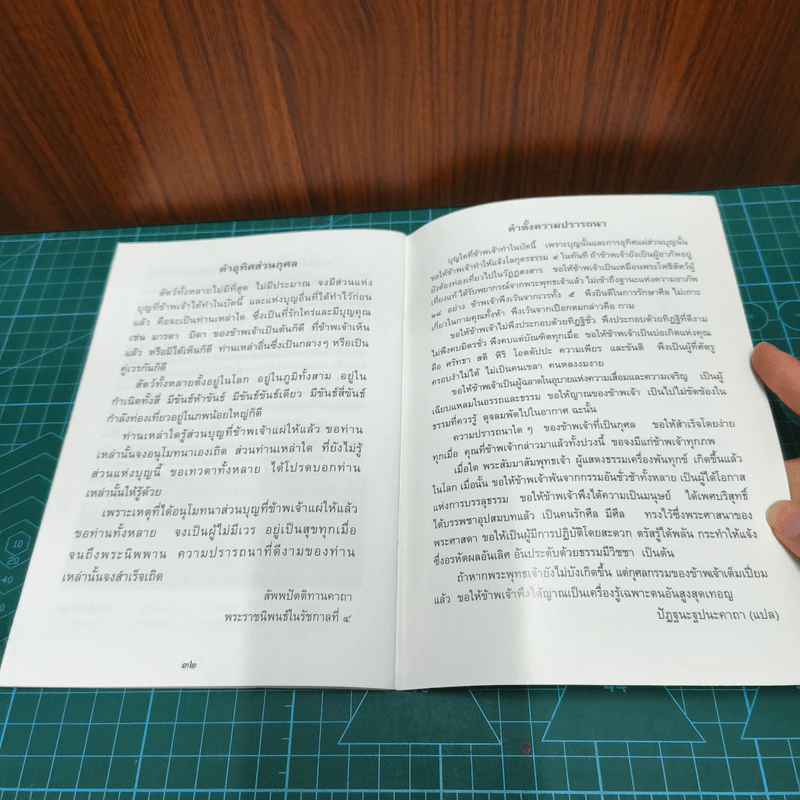 คำอุทิศส่วนกุศล
สัตว์ทั้งหลายไม่มีที่สุด ไม่มีประมาณ จงมีส่วนแห่ง
บุญที่ข้าพเจ้าได้ทำในบัดนี้ และแห่งบุญอื่นที่ได้ทำไว้ก่อน
แล้ว คือจะเป็นท่านเหล่าใด ซึ่งเป็นที่รักใคร่และมีบุญคุณ
เช่น มารดา บิดา ของข้าพเจ้าเป็นต้นก็ดี ที่ข้าพเจ้าเห็น
แล้ว หรือมิได้เห็นก็ดี ท่านเหล่าอื่นซึ่งเป็นกลางๆ หรือเป็น
คู่เวรกันก็ดี
สัตว์ทั้งหลายตั้งอยู่ในโลก อยู่ในภูมิทั้งสาม อยู่ใน
กำเนิดทั้งสี่ มีขันธ์ห้าขันธ์ มีขันธ์ขันธ์เดียว มีขันธ์สี่ขันธ์
กำลังท่องเที่ยวอยู่ในภพน้อยใหญ่ก็ดี
ท่านเหล่าใดรู้ส่วนบุญที่ข้าพเจ้าแผ่ให้แล้ว ขอท่าน
เหล่านั้นจงอนุโมทนาเองเถิด ส่วนท่านเหล่าใด ที่ยังไม่รู้
ส่วนแห่งบุญนี้ ขอเทวดาทั้งหลาย ได้โปรดบอกท่าน
เหล่านั้นให้รู้ด้วย
เพราะเหตุที่ได้อนุโมทนาส่วนบุญที่ข้าพเจ้าแผ่ให้แล้ว
ขอท่านทั้งหลาย จงเป็นผู้ไม่มีเวร อยู่เป็นสุขทุกเมื่อ
จนถึงพระนิพพาน ความปรารถนาที่ดีงามของท่าน
เหล่านั้นจงสำเร็จเถิด
สัพพปัตติทานคาถา
พระราชนิพนธ์ในรัชกาลที่ ๔
๓๒
คำตั้งความปรารถนา
บุญใดที่ข้าพเจ้าทำในบัดนี้ เพราะบุญนั้นและการอุทิศแผ่ส่วนบุญนั้น
ขอให้ข้าพเจ้าทำให้แจ้งโลกุตรธรรม ๙ ในทันที ถ้าข้าพเจ้ายังเป็นผู้อาภัพอยู่
ยังต้องท่องเที่ยวไปในวัฏฏสงสาร ขอให้ข้าพเจ้าเป็นเหมือนพระโพธิสัตว์ผู้
เที่ยงแท้ ได้รับพยากรณ์จากพระพุทธเจ้าแล้ว ไม่เข้าถึงฐานะแห่งความอาภัพ
๑๘ อย่าง ข้าพเจ้าพึงเว้นจากเวรทั้ง ๕ พึงยินดีในการรักษาศีล ไม่เกาะ
เกี่ยวในกามคุณทั้งห้า พึงเว้นจากเปือกตมกล่าวคือ กาม
ขอให้ข้าพเจ้าไม่พึงประกอบด้วยทิฏฐิชั่ว พึงประกอบด้วยทิฏฐิที่ดีงาม
ไม่พึงคบมิตรชั่ว พึงคบแต่บัณฑิตทุกเมื่อ ขอให้ข้าพเจ้าเป็นบ่อเกิดแห่งคุณ
คือ ศรัทธา สติ หิริ โอตตัปปะ ความเพียร และขันติ พึงเป็นผู้ที่ศัตรู
ครอบงำไม่ได้ ไม่เป็นคนเขลา คนหลงงมงาย
ขอให้ข้าพเจ้าเป็นผู้ฉลาดในอุบายแห่งความเสื่อมและความเจริญ เป็นผู้
เฉียบแหลมในอรรถและธรรม ขอให้ญาณของข้าพเจ้า เป็นไปไม่ขัดข้องใน
ธรรมที่ควรรู้ ดุจลมพัดไปในอากาศ ฉะนั้น
ความปรารถนาใดๆ ของข้าพเจ้าที่เป็นกุศล ขอให้สำเร็จโดยง่าย
ทุกเมื่อ คุณที่ข้าพเจ้ากล่าวมาแล้วทั้งปวงนี้ ขอจงมีแก่ข้าพเจ้าทุกภพ
เมื่อใด พระสัมมาสัมพุทธเจ้า ผู้แสดงธรรมเครื่องพ้นทุกข์ เกิดขึ้นแล้ว
ในโลก เมื่อนั้น ขอให้ข้าพเจ้าพ้นจากกรรมอันชั่วช้าทั้งหลาย เป็นผู้ได้โอกาส
แห่งการบรรลุธรรม ขอให้ข้าพเจ้าพึงได้ความเป็นมนุษย์ ได้เพศบริสุทธิ์
ได้บรรพชาอุปสมบทแล้ว เป็นคนรักศีล มีศีล ทรงไว้ซึ่งพระศาสนาของ
พระศาสดา ขอให้เป็นผู้มีการปฏิบัติโดยสะดวก ตรัสรู้ได้พลัน กระทำให้แจ้ง
ซึ่งอรหัตผลอันเลิศ อันประดับด้วยธรรมมีวิชชา เป็นต้น
ถ้าหากพระพุทธเจ้ายังไม่บังเกิดขึ้น แต่กุศลกรรมของข้าพเจ้าเต็มเปี่ยม
แล้ว ขอให้ข้าพเจ้าพึงได้ญาณเป็นเครื่องรู้เฉพาะตนอันสูงสุดเทอญ
ปัฏฐนะฐปนะคาถา (แปล)